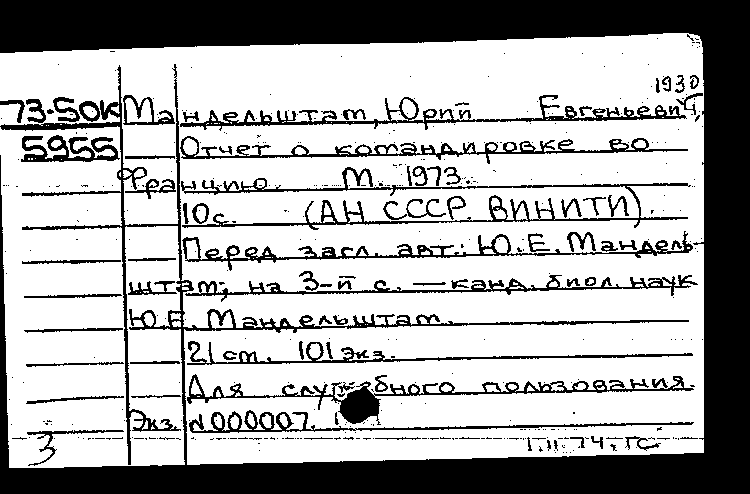 1930
73-50К Мандельштам, Юрий Евгеньевич,
5955 Отчет о командировке во
Францию. М., 1973.
10с. (АН СССР. ВИНИТИ).
Перед загл. авт.: Ю.Е. Мандель-
штам; на 3-й с. — канд. биол. наук
Ю.Е. Мандельштам.
21 см. 101 экз.
Для служебного пользования.
Экз. N000007.
3 1.II.74. ГС